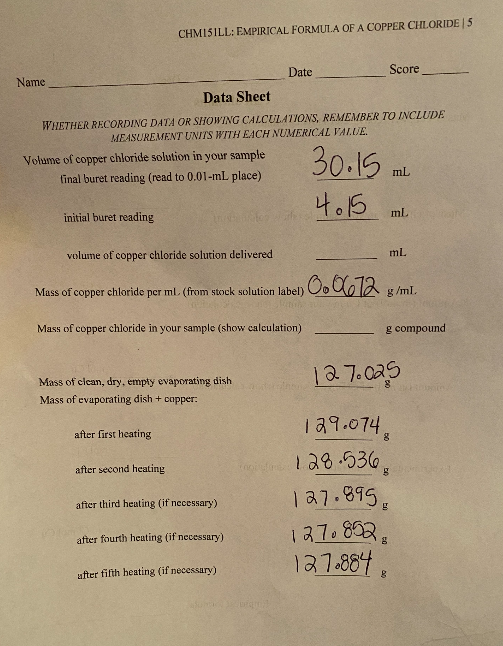 CHM151LL: EMPIRICAL FORMULA OF A COPPER CHLORIDE | 5
Name Date Score
Data Sheet
WHETHER RECORDING DATA OR SHOWING CALCULATIONS, REMEMBER TO INCLUDE
MEASUREMENT UNITS WITH EACH NUMERICAL VALUE.
Volume of copper chloride solution in your sample
final buret reading (read to 0.01-mL place) 30.15 mL
initial buret reading 4.15 mL
volume of copper chloride solution delivered mL
Mass of copper chloride per mL (from stock solution label) 0.0672 g/mL
Mass of copper chloride in your sample (show calculation) g compound
Mass of clean, dry, empty evaporating dish 127.025 g
Mass of evaporating dish + copper:
after first heating 129.074 g
after second heating 128.536 g
after third heating (if necessary) 127.895 g
after fourth heating (if necessary) 127.852 g
after fifth heating (if necessary) 127.884 g